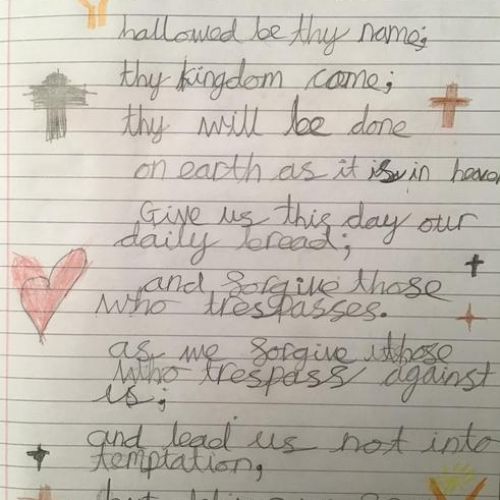 hallowed be thy name;
thy kingdom come;
thy will be done
on earth as it is in heaven
Give us this day our
daily bread;
and forgive those
who trespasses.
as we forgive those
who trespass against
us;
and lead us not into
temptation,